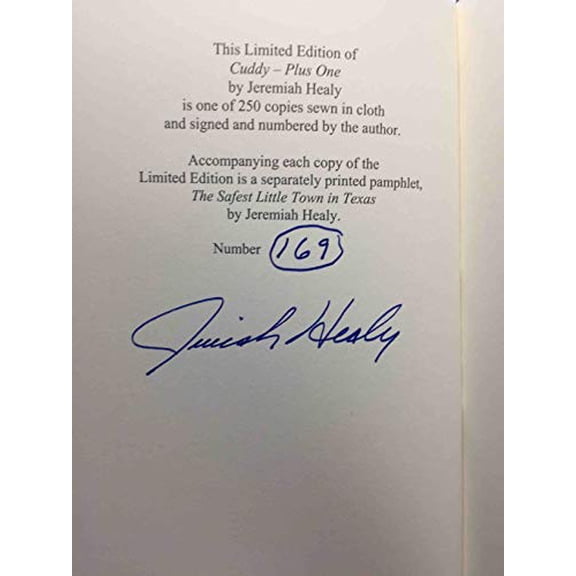 This Limited Edition of
Cuddy – Plus One
by Jeremiah Healy
is one of 250 copies sewn in cloth
and signed and numbered by the author.
Accompanying each copy of the
Limited Edition is a separately printed pamphlet,
The Safest Little Town in Texas
by Jeremiah Healy.
Number 169
Jeremiah Healy